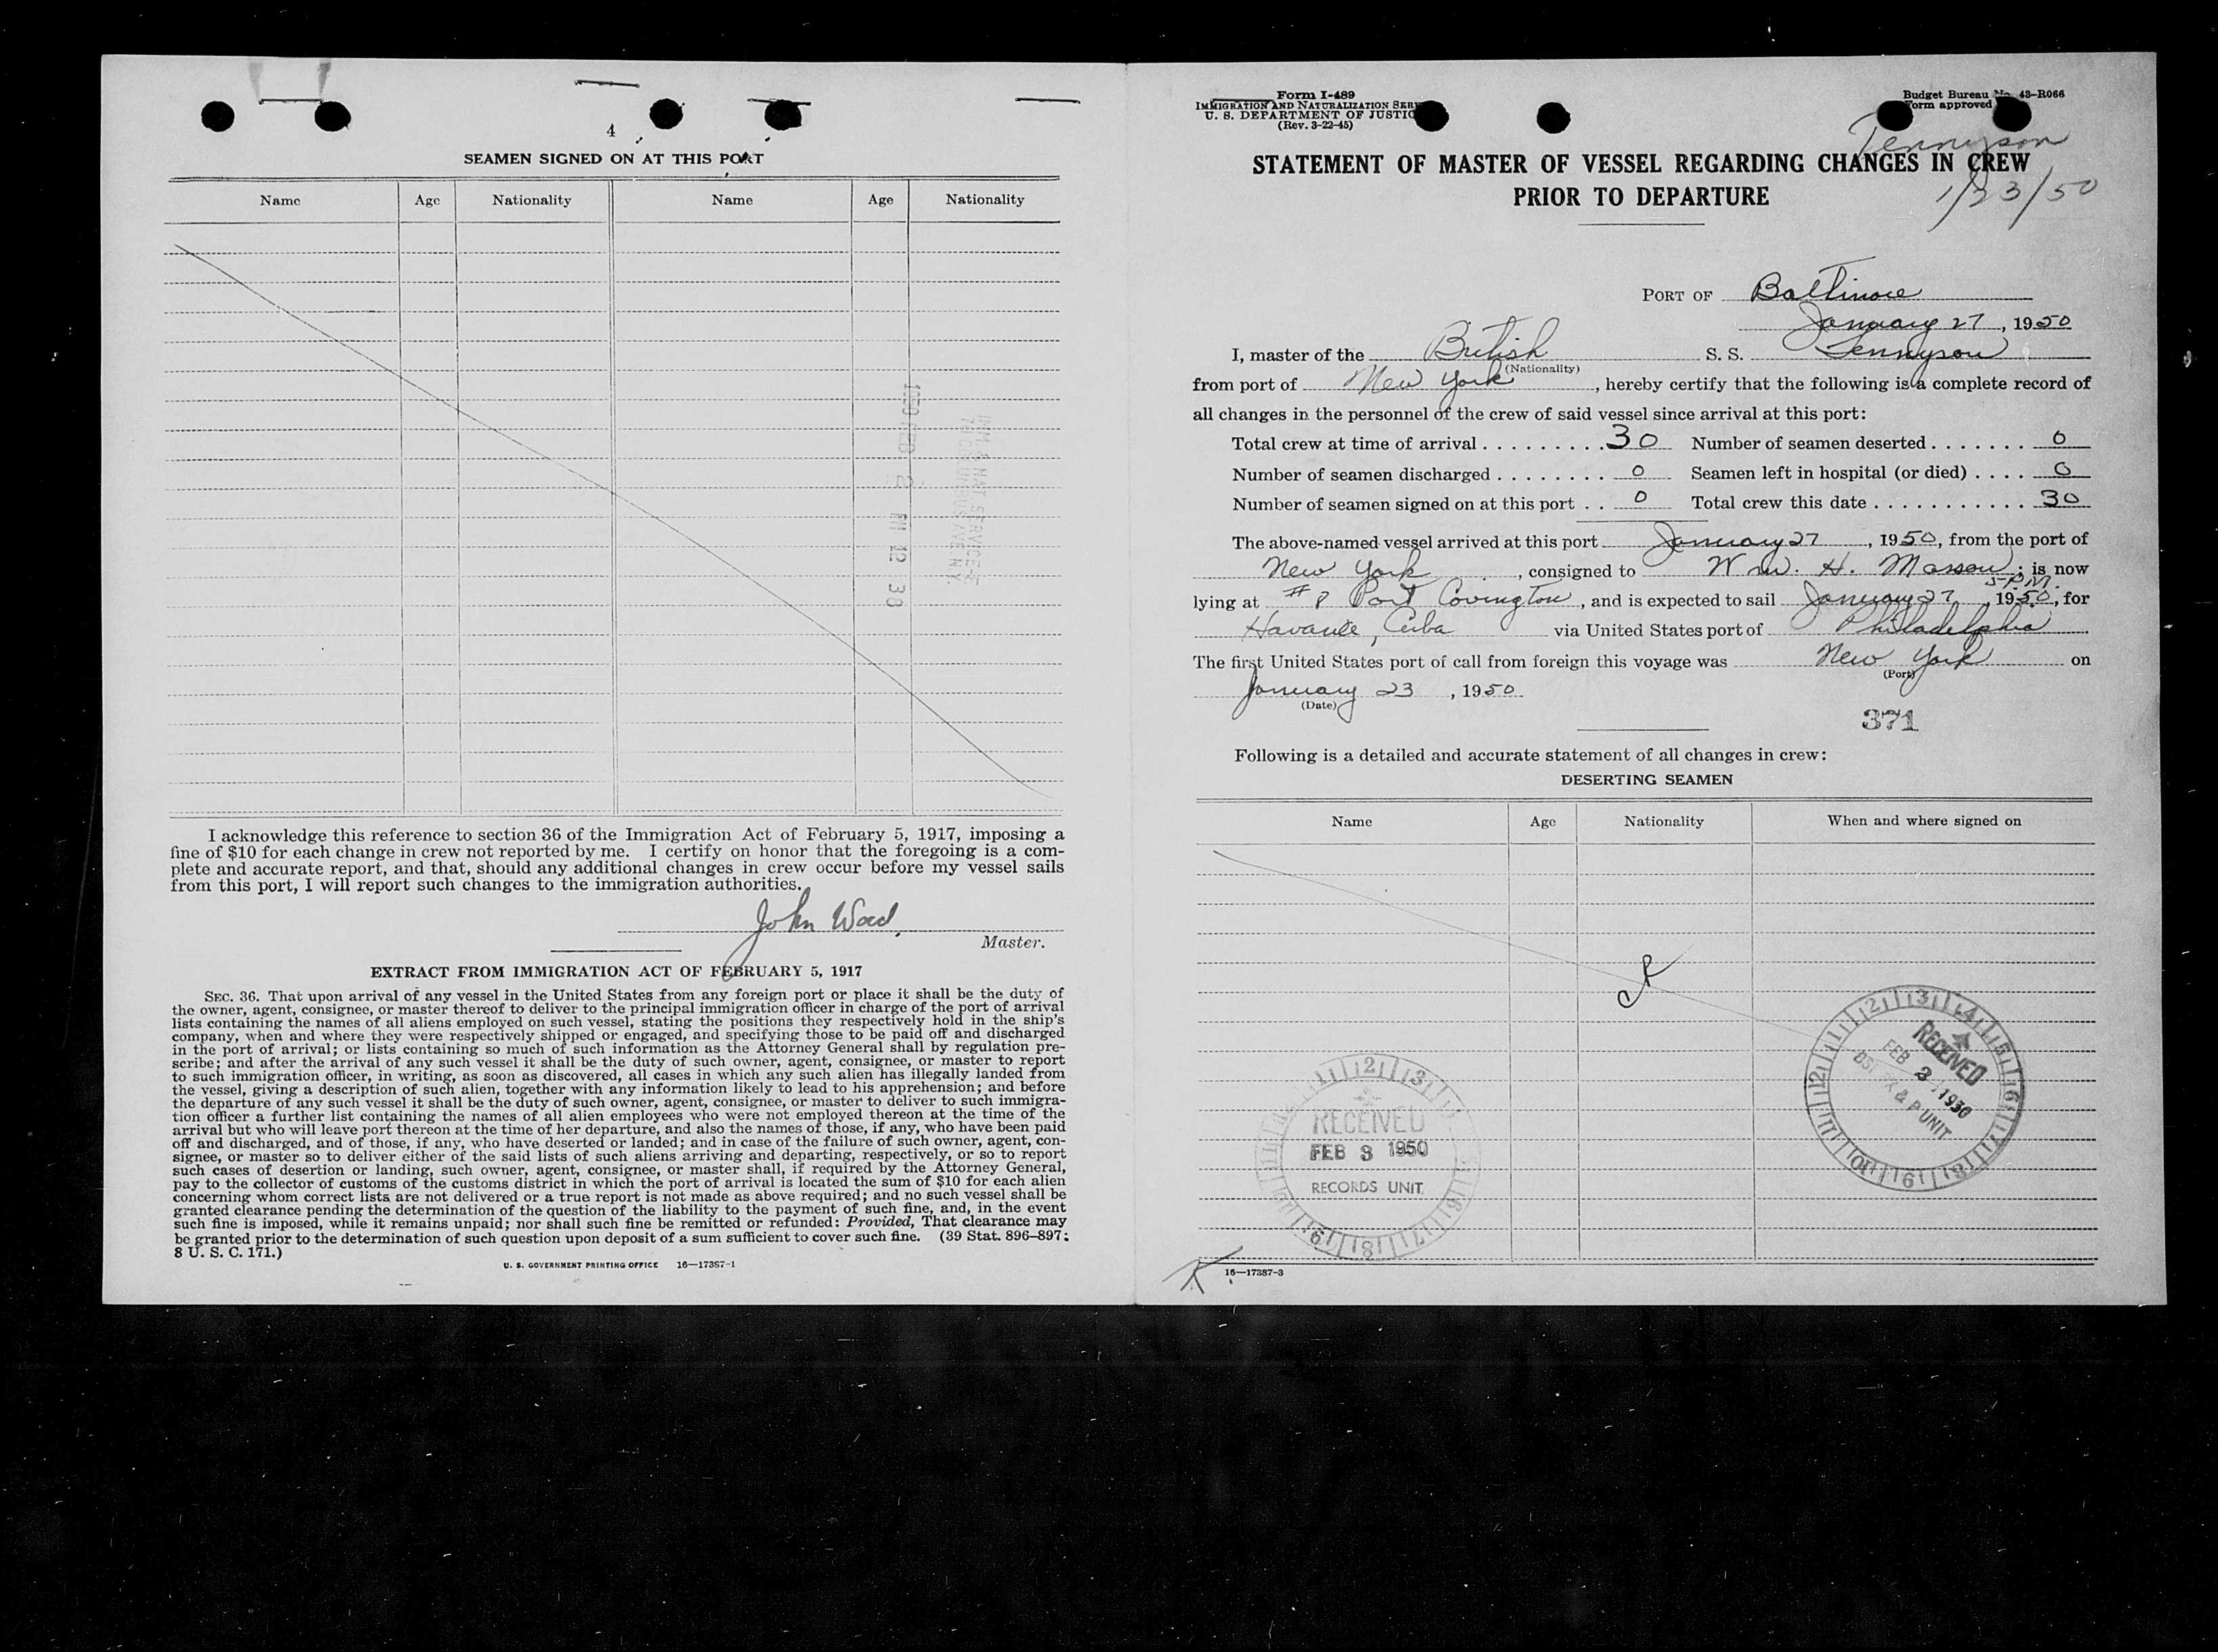 4
SEAMEN SIGNED ON AT THIS PORT
Name Age Nationality Name Age Nationality
I acknowledge this reference to section 36 of the Immigration Act of February 5, 1917, imposing a
fine of $10 for each change in crew not reported by me. I certify on honor that the foregoing is a com-
plete and accurate report, and that, should any additional changes in crew occur before my vessel sails
from this port, I will report such changes to the immigration authorities.
John Wood
Master.
EXTRACT FROM IMMIGRATION ACT OF FEBRUARY 5, 1917
SEC. 36. That upon arrival of any vessel in the United States from any foreign port or place it shall be the duty of
the owner, agent, consignee, or master thereof to deliver to the principal immigration officer in charge of the port of arrival
lists containing the names of all aliens employed on such vessel, stating the positions they respectively hold in the ship's
company, when and where they were respectively shipped or engaged, and specifying those to be paid off and discharged
in the port of arrival; or lists containing so much of such information as the Attorney General shall by regulation pre-
scribe; and after the arrival of any such vessel it shall be the duty of such owner, agent, consignee, or master to report
to such immigration officer, in writing, as soon as discovered, all cases in which any such alien has illegally landed from
the vessel, giving a description of such alien, together with any information likely to lead to his apprehension; and before
the departure of any such vessel it shall be the duty of such owner, agent, consignee, or master to deliver to such immigra-
tion officer a further list containing the names of all alien employees who were not employed thereon at the time of the
arrival but who will leave port thereon at the time of her departure, and also the names of those, if any, who have been paid
off and discharged, and of those, if any, who have deserted or landed; and in case of the failure of such owner, agent, con-
signee, or master so to deliver either of the said lists of such aliens arriving and departing, respectively, or so to report
such cases of desertion or landing, such owner, agent, consignee, or master shall, if required by the Attorney General,
pay to the collector of customs of the customs district in which the port of arrival is located the sum of $10 for each alien
concerning whom correct lists are not delivered or a true report is not made as above required; and no such vessel shall be
granted clearance pending the determination of the question of the liability to the payment of such fine, and, in the event
such fine is imposed, while it remains unpaid; nor shall such fine be remitted or refunded: Provided, That clearance may
be granted prior to the determination of such question upon deposit of a sum sufficient to cover such fine. (39 Stat. 896–897;
8 U. S. C. 171.)
U. S. GOVERNMENT PRINTING OFFICE 16—17387-1
Form I-489
IMMIGRATION AND NATURALIZATION SER
U. S. DEPARTMENT OF JUSTIC
(Rev. 3-22-45)
Budget Bureau No. 43–R066
Form approved
Tennyson
1/23/50
STATEMENT OF MASTER OF VESSEL REGARDING CHANGES IN CREW
PRIOR TO DEPARTURE
PORT OF Baltimore
January 27, 1950
I, master of the British S. S. Tennyson
(Nationality)
from port of New York, hereby certify that the following is a complete record of
all changes in the personnel of the crew of said vessel since arrival at this port:
Total crew at time of arrival 30 Number of seamen deserted 0
Number of seamen discharged 0 Seamen left in hospital (or died) 0
Number of seamen signed on at this port 0 Total crew this date 30
The above-named vessel arrived at this port January 27, 1950, from the port of
New York, consigned to Wm. H. Masson; is now
5 P.M.
lying at #8 Port Covington, and is expected to sail January 27, 1950, for
Havana, Cuba via United States port of Philadelphia
The first United States port of call from foreign this voyage was New York on
(Port)
January 23, 1950
(Date)
371
Following is a detailed and accurate statement of all changes in crew:
DESERTING SEAMEN
Name Age Nationality When and where signed on
RECEIVED
FEB 3 1950
RECORDS UNIT
RECEIVED
FEB 3 1950
& P UNIT
K
16—17387-3